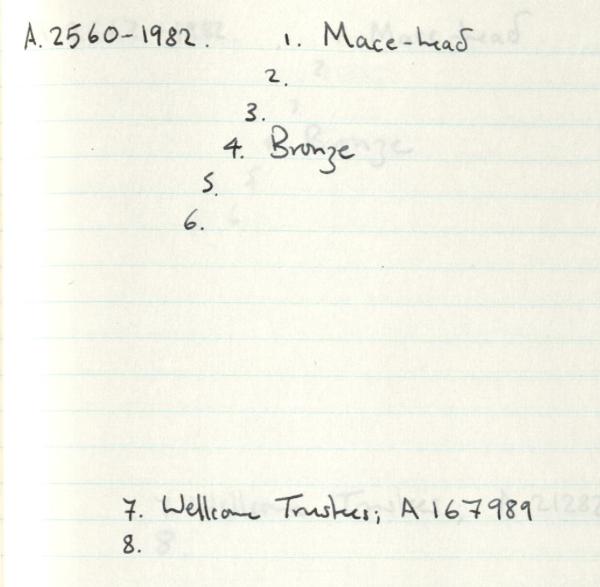 A. 2560-1982. 1. Mace-head
2.
3.
4. Bronze
5.
6.
7. Wellcome Trustees; A 167989
8.